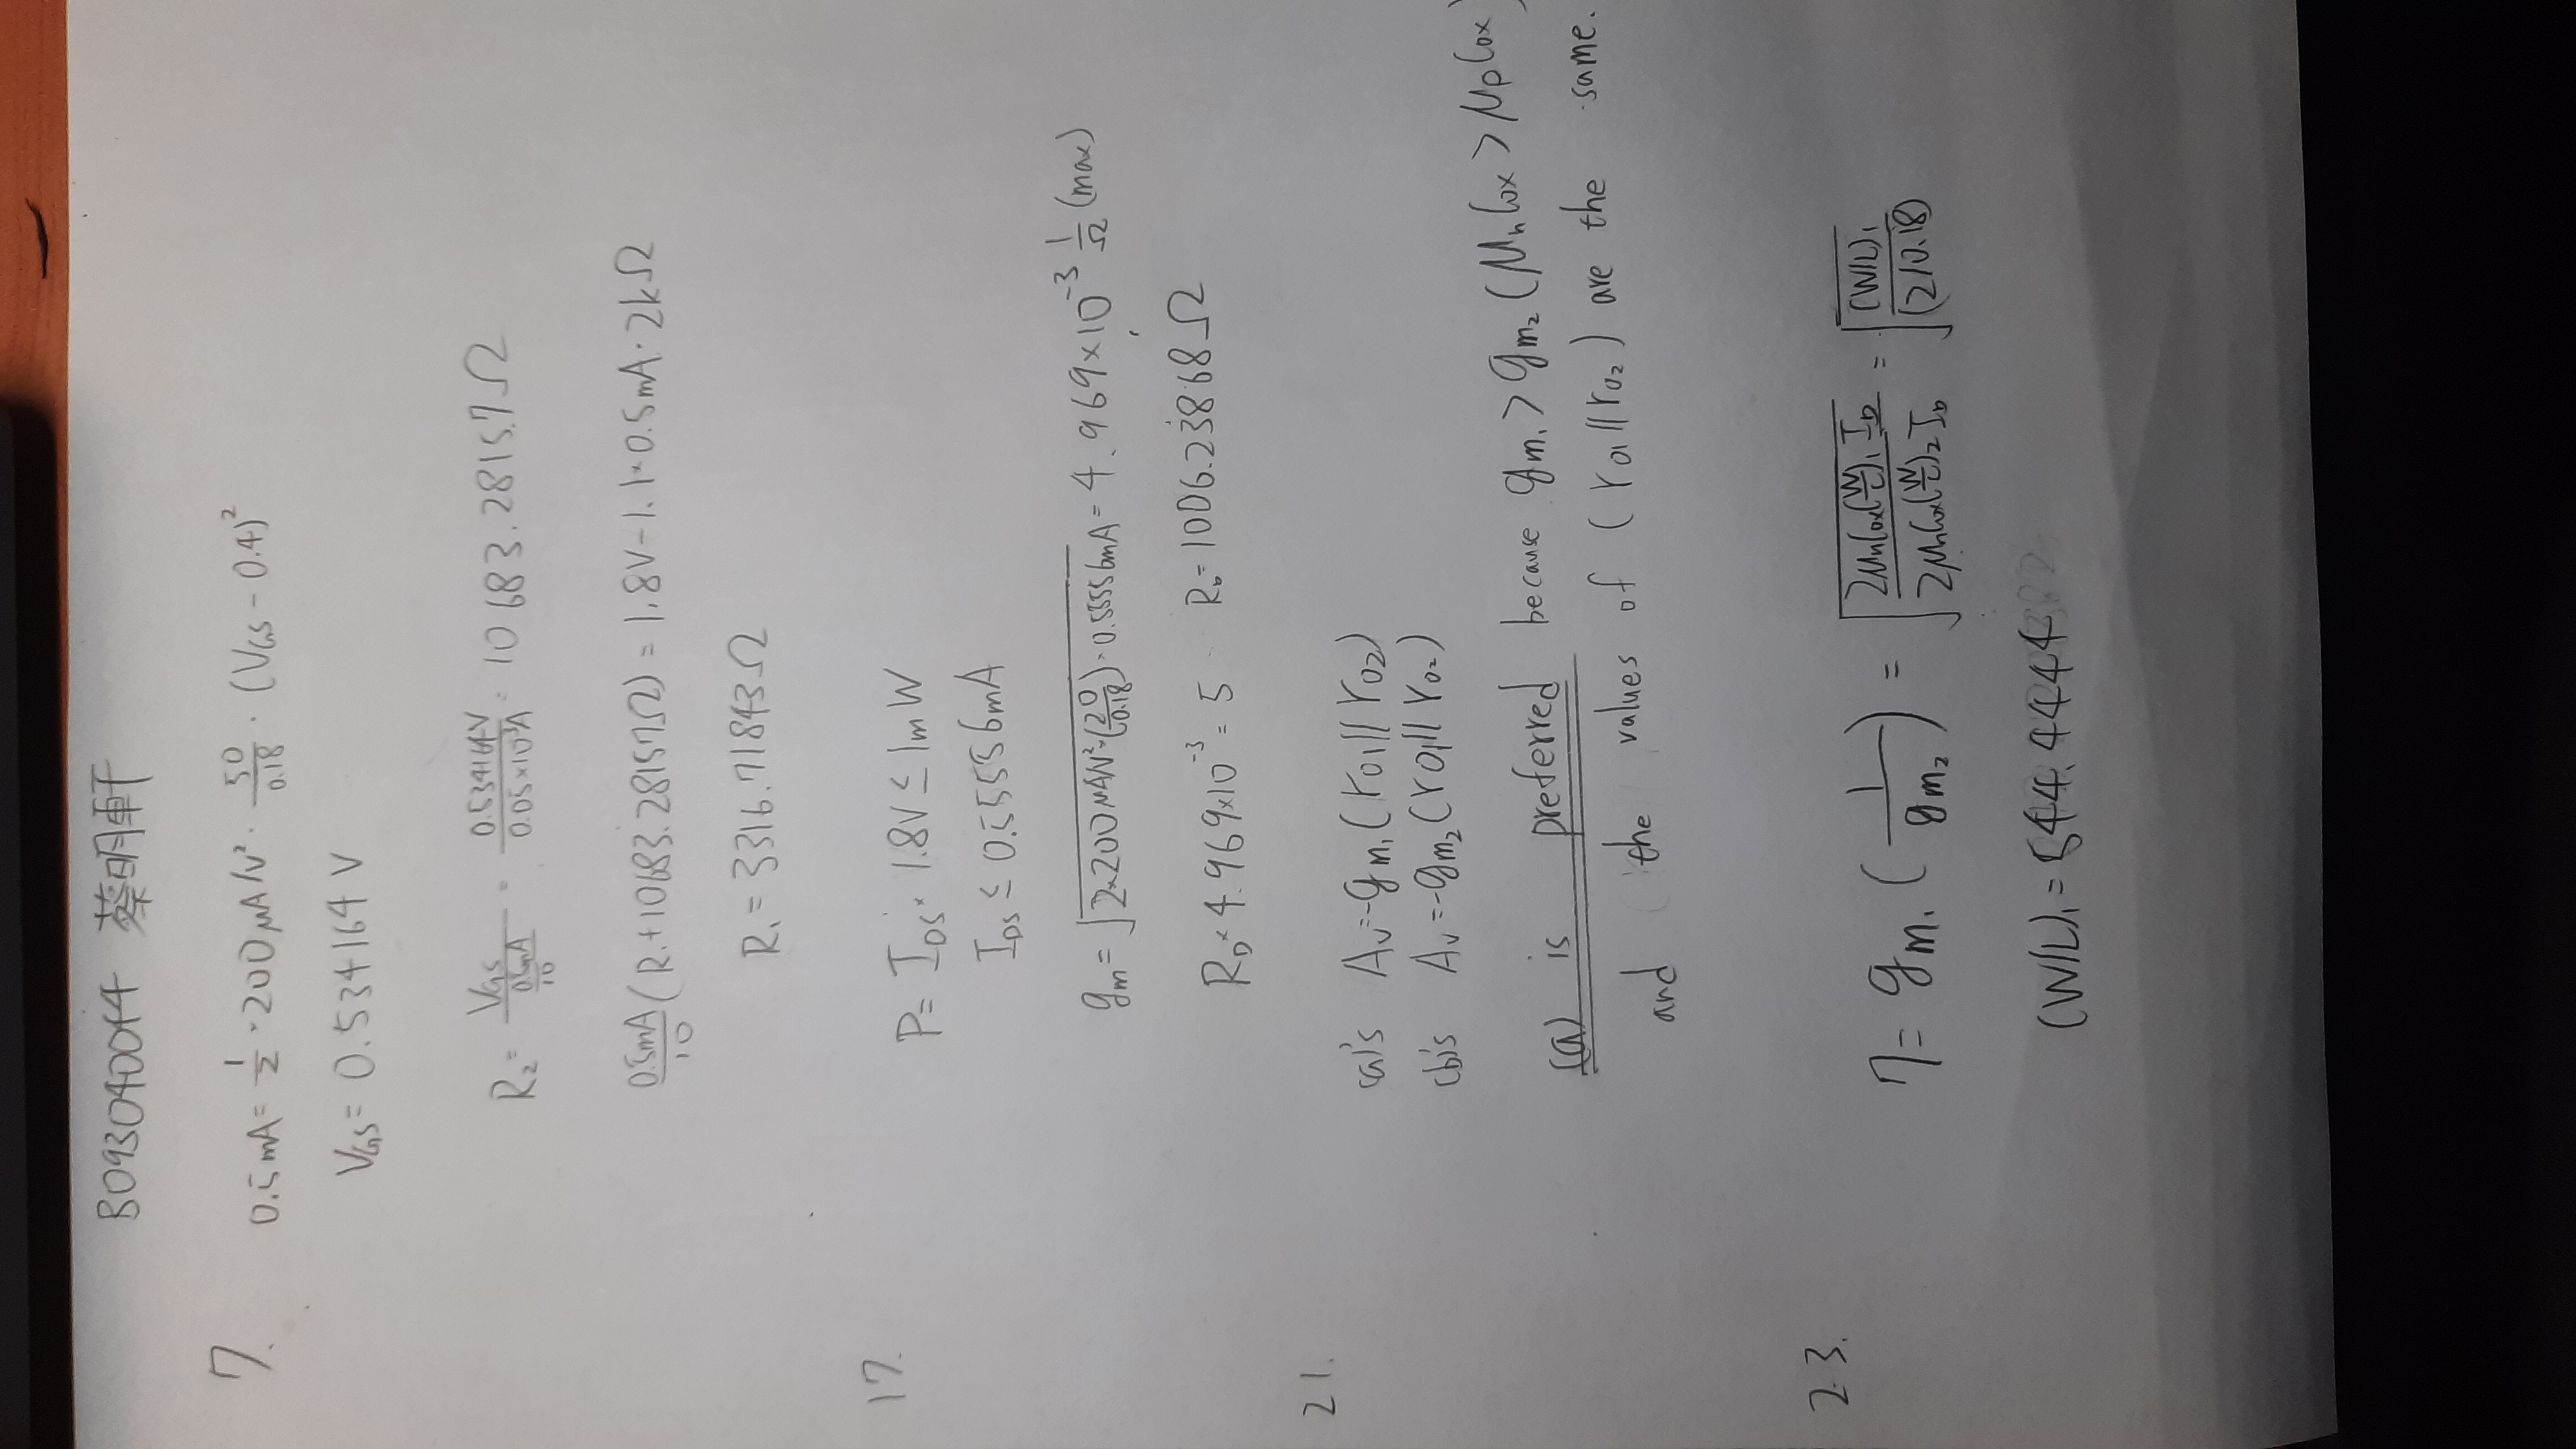 B093040044 蔡明軒
7.
0.5mA = 1/2 · 200μA/V² · 50/0.18 · (VGS - 0.4)²
VGS = 0.534164 V
R2 = VGS / (0.5mA/10) = 0.534164V / 0.05×10⁻³A = 10683.28157Ω
0.5mA/10 (R1 + 10683.28157Ω) = 1.8V - 1.1 × 0.5mA · 2kΩ
R1 = 3316.71843Ω
17.
P = IDS × 1.8V ≤ 1mW
IDS ≤ 0.55556mA
gm = √(2×200μA/V²×(20/0.18)×0.55556mA) = 4.969×10⁻³ 1/Ω (max)
RD × 4.969×10⁻³ = 5 RD = 1006.23868Ω
21.
(a)'s Av = -gm1 (ro1 || ro2)
(b)'s Av = -gm2 (ro1 || ro2)
(a) is preferred because gm1 > gm2 (μnCox > μpCox)
and the values of (ro1 || ro2) are the same.
23.
7 = gm1 (1/gm2) = √(2μnCox(W/L)1 ID / 2μnCox(W/L)2 ID) = √((W/L)1 / (2/0.18))
(W/L)1 = 544.4444